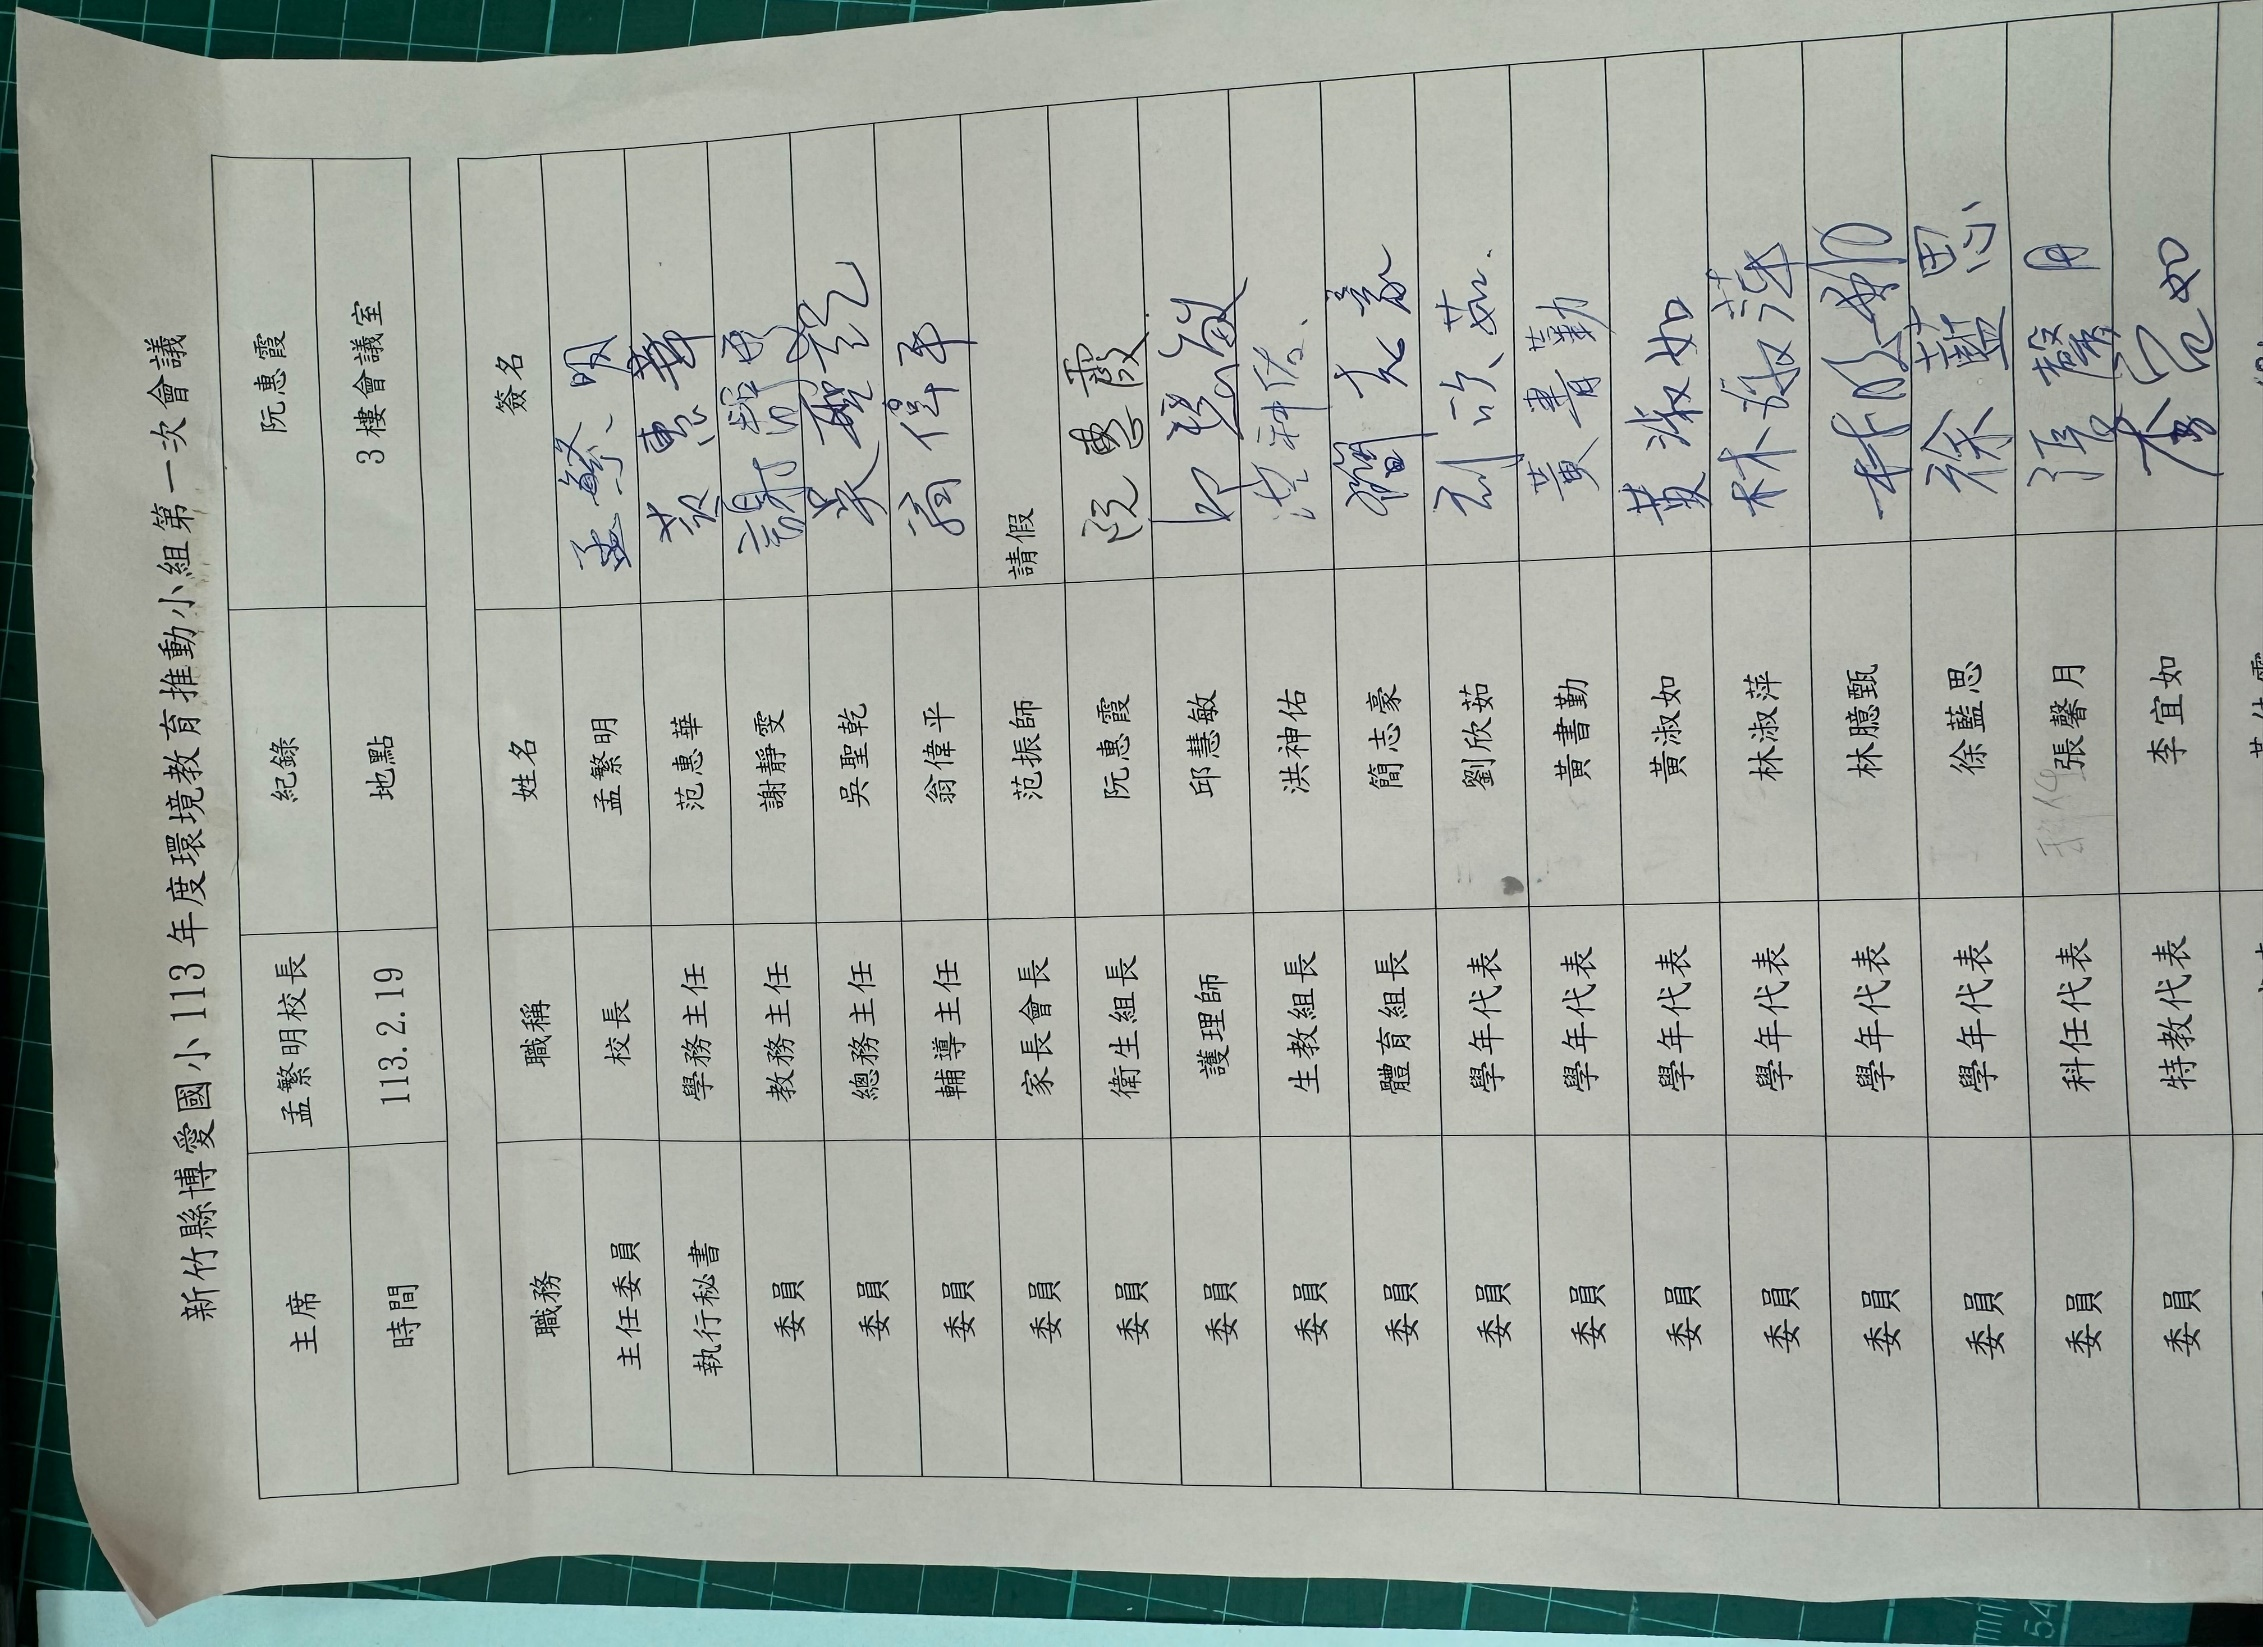 新竹縣博愛國小 113 年度環境教育推動小組第一次會議
主席 孟繁明校長 紀錄 阮惠霞
時間 113.2.19 地點 3 樓會議室
職務 職稱 姓名 簽名
主任委員 校長 孟繁明 孟繁明
執行秘書 學務主任 范惠華 范惠華
委員 教務主任 謝靜雯 謝靜雯
委員 總務主任 吳聖乾 吳聖乾
委員 輔導主任 翁偉平 翁偉平
委員 家長會長 范振師 請假
委員 衛生組長 阮惠霞 阮惠霞
委員 護理師 邱慧敏 邱慧敏
委員 生教組長 洪神佑 洪神佑
委員 體育組長 簡志豪 簡志豪
委員 學年代表 劉欣茹 刘欣茹
委員 學年代表 黃書勤 黃書勤
委員 學年代表 黃淑如 黃淑如
委員 學年代表 林淑萍 林淑萍
委員 學年代表 林臆甄 林臆甄
委員 學年代表 徐藍思 徐藍思
委員 科任代表 張馨月 張馨月
委員 特教代表 李宜如 李宜如